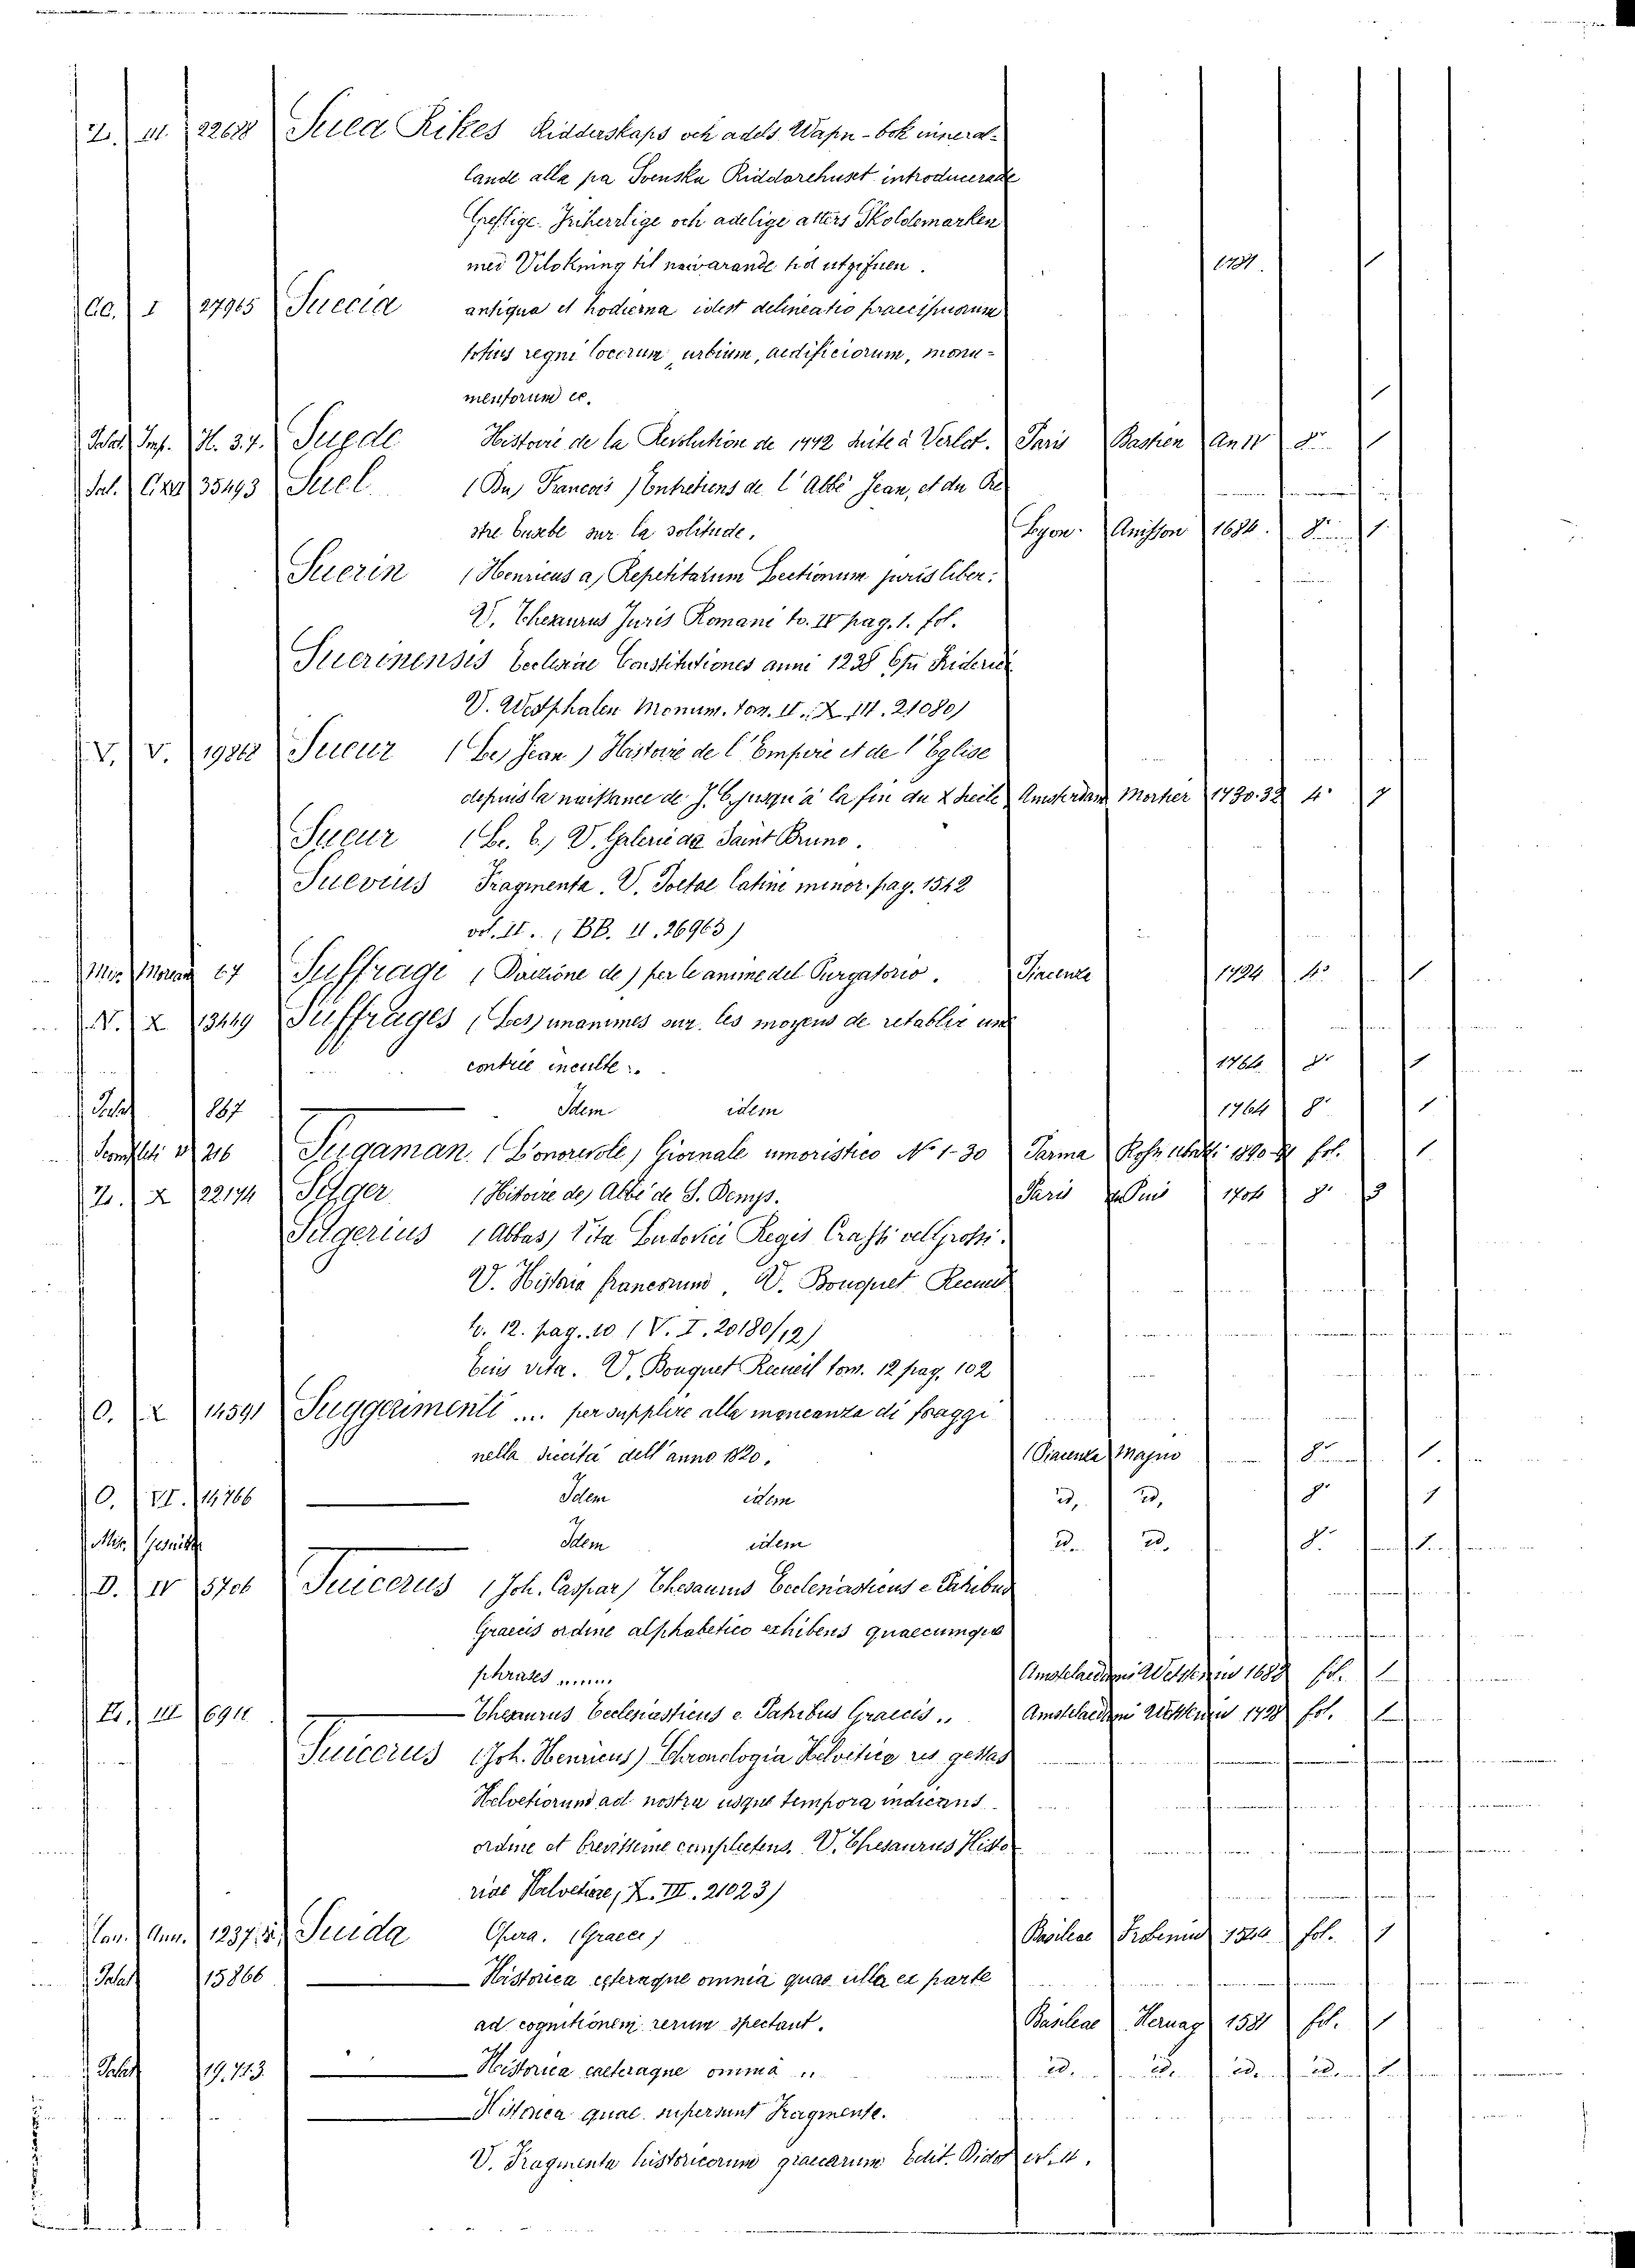 Z. III. 22678 Suea Rikes Ridderskaps och adels Wapn-bok innehal-
lande alla pa Svenska Riddarehuset introducerade
Greflige. Friherrlige och adelige atters Skoldemarken
med Utokning til narvarande tid utgifven. 1781. 1
CC. I 27965 Suecia antiqua et hodierna idest delineatio praecipuorum
totius regni locorum, urbium, aedificiorum, monu-
mentorum ec. 1
Palat. Imp. H. 37. Suede Histoire de la Revolution de 1772 suite à Verlot. Paris Bastien An 11 8° 1
Pal. 35493 Suel (Du) François) Entretiens de l'Abbé Jean, et du Pre
stre Eusebe sur la solitude. Lyon. Anisson 1684. 8° 1.
Suerin (Henricus a) Repetitarum Lectionum juris liber.
V. Thesaurus Juris Romani to. IV pag. 1. fol.
Suerinensis Ecclesiae Constitutiones anni 1238 Friderici
V. Westphalen Monum. tom. II. X III. 21080)
V. V. 19862 Sueur (Le) Jean) Histoire de l'Empire et de l'Eglise
depuis la naissance de J. C. jusqu'à la fin du X siecle Amsterdam Mortier 1730.32 4° 7
Sueur (Le. E.) V. Galerie de Saint Bruno.
Suevius Fragmenta. V. Poetae latini minor. pag. 1542
vol. II. (BB. II. 26963)
Mis. Moreau 67 Suffrage (Divozione de) per le anime del Purgatorio. Piacenza 1794 4° 1
N. X 13449 Suffrages (Les) unanimes sur les moyens de retablir une
contrée inculte. 1764 8° 1
Palat 867 ——— Idem idem 1764 8° 1
216 Sugaman. (L'onorevole) Giornale umoristico N° 1-30 Parma fol. 1
Z. X 22174 Suger (Histoire de) Abbé de S. Denys. Paris 8° 3
Sugerius (Abbas) Vita Ludovici Regis Crassi vel Grossi.
V. Historia francorum, V. Bouquet Recueil
to. 12. pag. 10 (V. I. 20180/12)
Eius vita. V. Bouquet Recueil tom. 12 pag. 102
O. X 14591 Suggerimenti .... per supplire alla mancanza di foraggi
nella siccità dell'anno 1820. Piacenza Majno 8° 1.
O. VI. 14766 ——— Idem idem id. id. 8° 1
Mis. ——— Idem idem id. id. 8. 1.
D. IV 5706 Suicerus (Joh. Caspar) Thesaurus Ecclesiasticus e Patribus
Graecis ordine alphabetico exhibens quaecumque
phrases ...... Amstelaedami Wetstenius 1682 fol. 2
III 6911 — Thesaurus Ecclesiasticus e Patribus Graecis.. Amstelaedami Wetstenius 1728 fol. 2
Suicerus (Joh. Henricus) Chronologia Helvetica res gestas
Helvetiorum ad nostra usque tempora indicans
ordine et brevissime complectens. V. Thesaurus Histo
riae Helvetiae, Z. III. 21023)
Ann. 1237, Suida Opera. (Graece) Basileae Frobenius 1544 fol. 1
Palat 15866 ——— Historica caeteraque omnia quae ulla ex parte
ad cognitionem rerum spectant. Basileae Hervag 1581 fol. 1
Palat 19.713 ——— Historica caeteraque omnia .. id. id. id. id. 1
——— Historica quae supersunt Fragmenta.
V. Fragmenta historicorum graecarum Edit. Didot vol. 4.